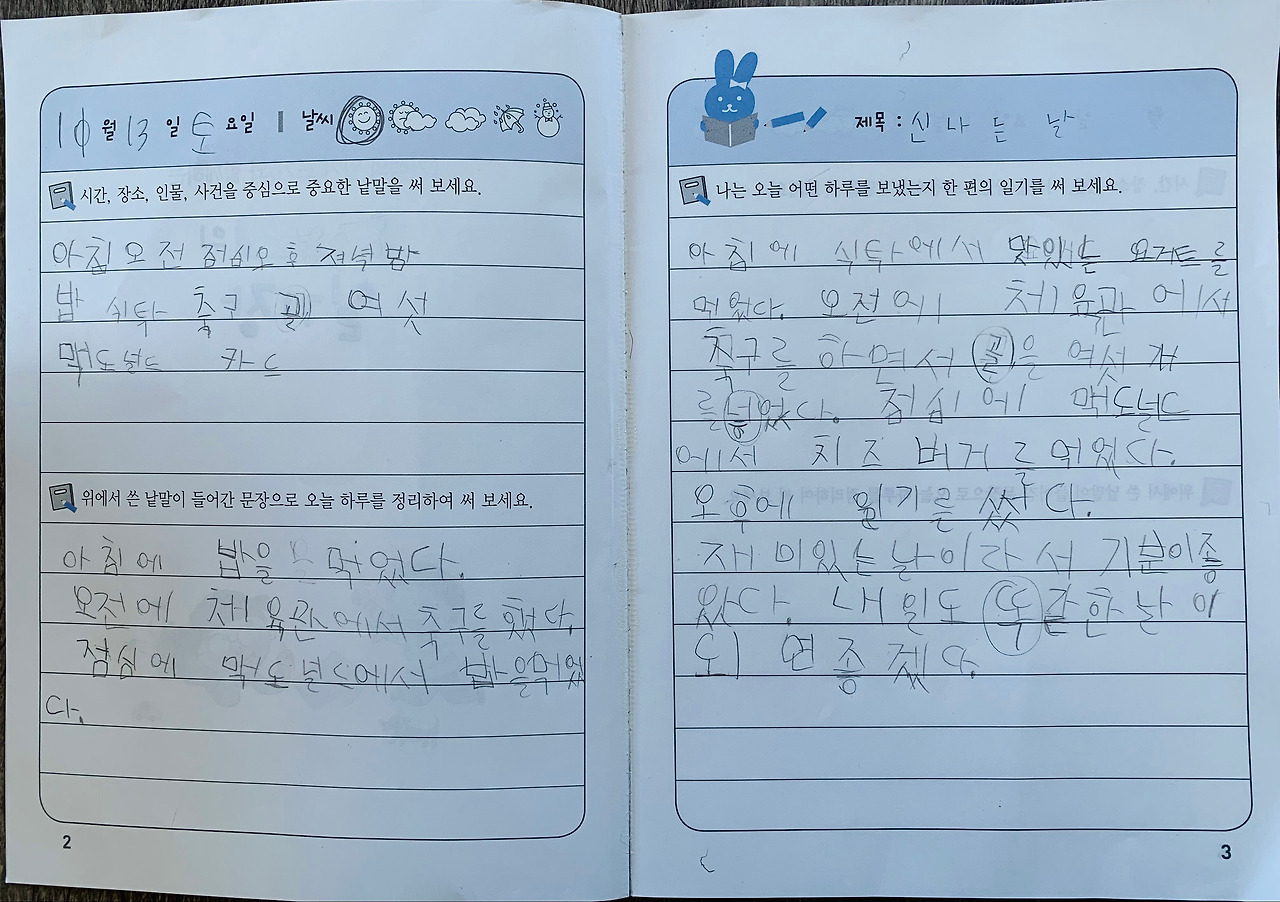 10월 13일 토요일 날씨
시간, 장소, 인물, 사건을 중심으로 중요한 낱말을 써 보세요.
아침 오전 점심 오후 저녁 밤
밥 식탁 축구 골 여섯
맥도널드 카드
위에서 쓴 낱말이 들어간 문장으로 오늘 하루를 정리하여 써 보세요.
아침에 밥을 먹었다.
오전에 체육관에서 축구를 했다.
점심에 맥도널드에서 밥을먹었
다.
2
제목 : 신나는 날
나는 오늘 어떤 하루를 보냈는지 한 편의 일기를 써 보세요.
아침에 식탁에서 맛있는 요거트를
먹었다. 오전에 체육관에서
축구를 하면서 골을 여섯 개
를 넣었다. 점심에 맥도널드
에서 치즈 버거를 먹었다.
오후에 일기를 썼다.
재미있는 날이라서 기분이 좋
았다. 내일도 똑같한 날이
되면 좋겠다.
3